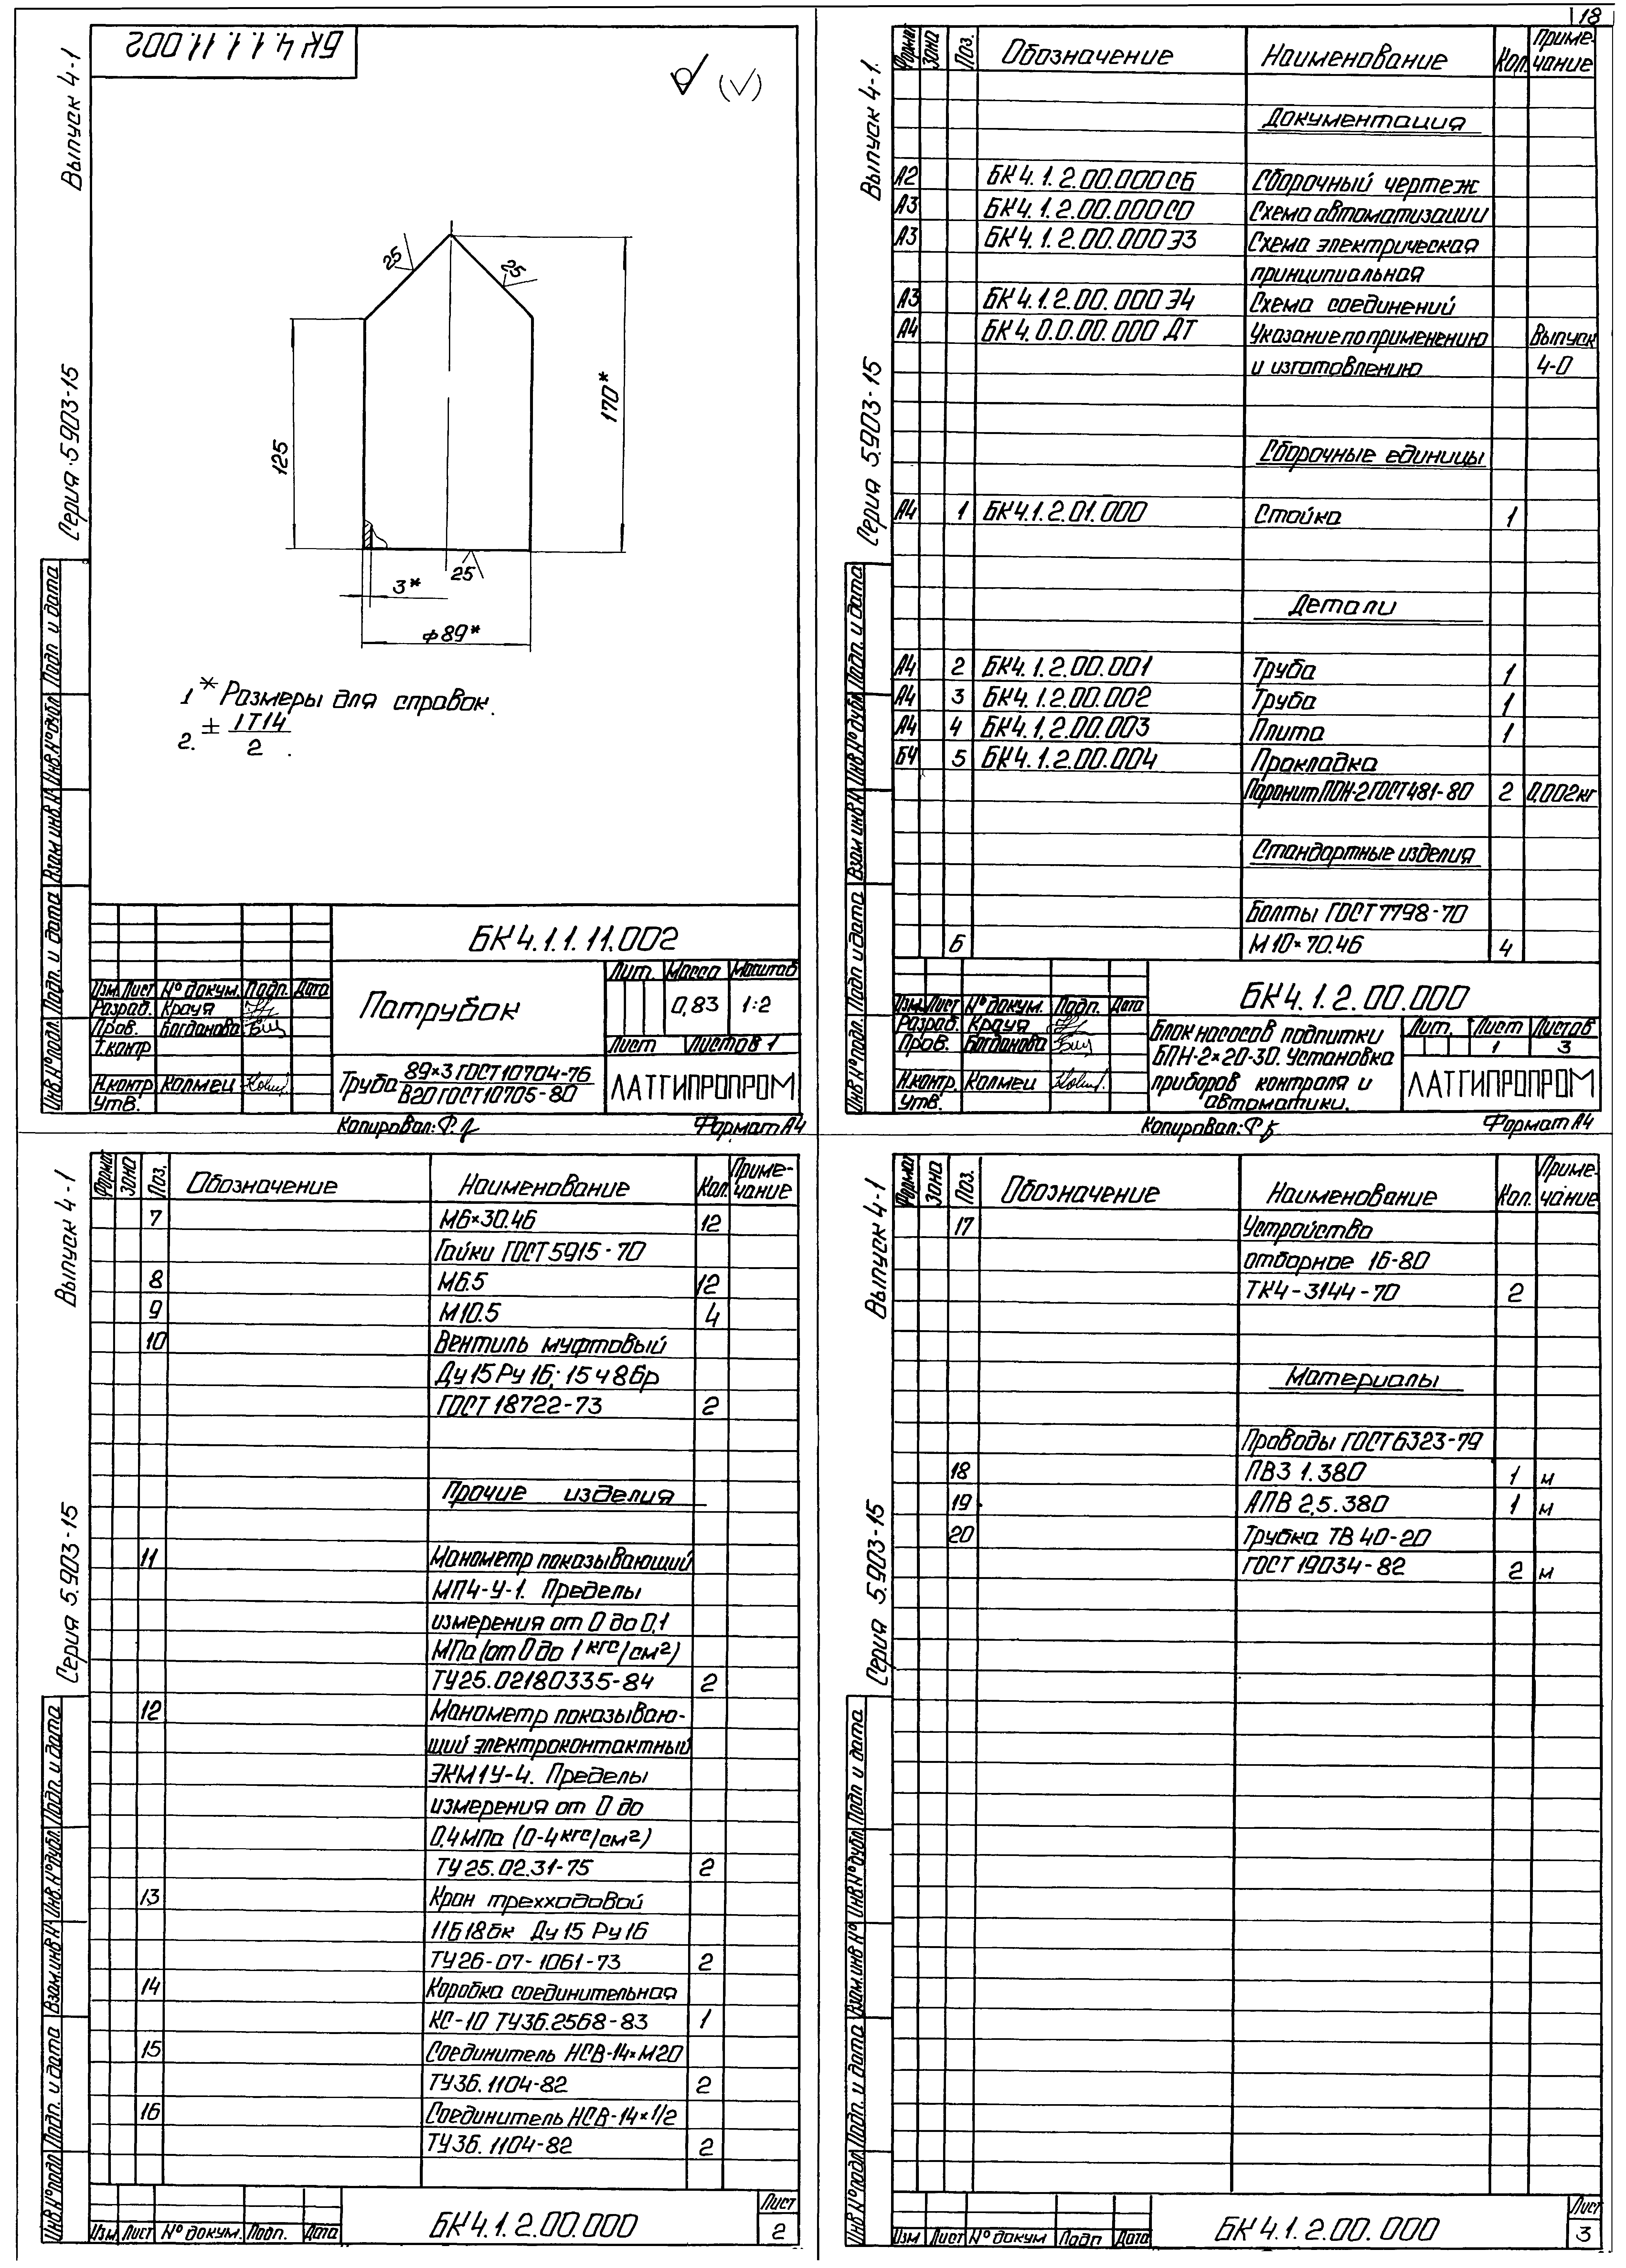 18
БК 4.1.1.11.002
Выпуск 4-1
Серия 5.903-15
(√)
25
25
125
170*
3*
25
ф 89*
1 * Размеры для справок.
2. ± IT14/2 .
Инв.№подл. Подп. и дата Взам инв.№ Инв.№дубл. Подп. и дата
БК 4.1.1.11.002
Изм. Лист № докум. Подп. Дата
Разраб. Крауя
Пров. Богданова
Т.контр
Н.контр Калмец
Утв.
Патрубок
Лит. Масса Масштаб
0,83 1:2
Лист Листов 1
Труба 89×3 ГОСТ 10704-76
В20 ГОСТ 10705-80
ЛАТГИПРОПРОМ
Копировал: Формат А4
Выпуск 4-1.
Серия 5.903-15
Формат Зона Поз. Обозначение Наименование Кол. Примечание
Документация
А2 БК 4.1.2.00.000 СБ Сборочный чертеж
А3 БК 4.1.2.00.000 СО Схема автоматизации
А3 БК 4.1.2.00.000 Э3 Схема электрическая
принципиальная
А3 БК 4.1.2.00.000 Э4 Схема соединений
А4 БК 4.0.0.00.000 ДТ Указание по применению Выпуск
и изготовлению 4-0
Сборочные единицы
А4 1 БК 4.1.2.01.000 Стойка 1
Детали
А4 2 БК 4.1.2.00.001 Труба 1
А4 3 БК 4.1.2.00.002 Труба 1
А4 4 БК 4.1.2.00.003 Плита 1
БЧ 5 БК 4.1.2.00.004 Прокладка
Паронит ПОН-2 ГОСТ 481-80 2 0,002кг
Стандартные изделия
Болты ГОСТ 7798-70
6 М10×70.46 4
Инв.№подл. Подп. и дата Взам инв.№ Инв.№дубл. Подп. и дата
БК 4.1.2.00.000
Изм. Лист № докум. Подп. Дата
Разраб. Крауя
Пров. Богданова
Н.контр. Калмец
Утв.
Блок насосов подпитки
БПН-2×20-30. Установка
приборов контроля и
автоматики.
Лит. Лист Листов
1 3
ЛАТГИПРОПРОМ
Копировал: Формат А4
Выпуск 4-1
Серия 5.903-15
Формат Зона Поз. Обозначение Наименование Кол. Примечание
7 М6×30.46 12
Гайки ГОСТ 5915-70
8 М6.5 12
9 М10.5 4
10 Вентиль муфтовый
Ду 15 Ру 16; 15ч8бр
ГОСТ 18722-73 2
Прочие изделия
11 Манометр показывающий
МП4-У-1. Пределы
измерения от 0 до 0,1
МПа (от 0 до 1 кгс/см²)
ТУ25.02180335-84 2
12 Манометр показываю-
щий электроконтактный
ЭКМ1У-4. Пределы
измерения от 0 до
0,4 МПа (0-4 кгс/см²)
ТУ 25.02.31-75 2
13 Кран трехходовой
11Б18бк Ду 15 Ру 16
ТУ26-07-1061-73 2
14 Коробка соединительная
КС-10 ТУ36.2568-83 1
15 Соединитель НСВ-14×М20
ТУ36.1104-82 2
16 Соединитель НСВ-14×1/2
ТУ36.1104-82 2
Инв.№подл Подп. и дата Взам.инв № Инв.№дубл. Подп. и дата
Изм Лист № докум. Подп. Дата
БК 4.1.2.00.000
Лист
2
Выпуск 4-1
Серия 5.903-15
Формат Зона Поз. Обозначение Наименование Кол. Примечание
17 Устройство
отборное 16-80
ТК4-3144-70 2
Материалы
Провода ГОСТ 6323-79
18 ПВ3 1.380 1 м
19 АПВ 2,5.380 1 м
20 Трубка ТВ 40-20
ГОСТ 19034-82 2 м
Инв.№подл Подп. и дата Взам.инв № Инв.№дубл. Подп и дата
Изм Лист № докум Подп Дата
БК 4.1.2.00.000
Лист
3